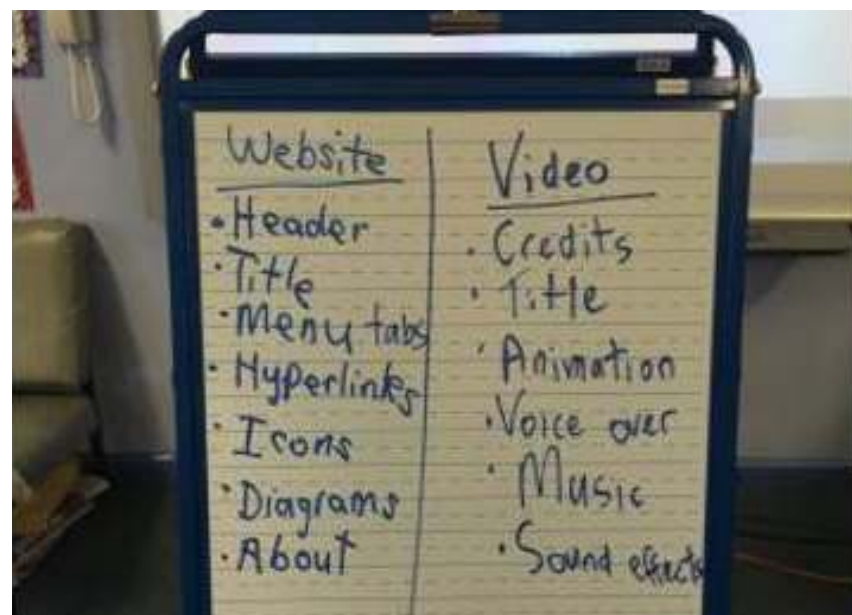 Website
Header
Title
Menu tabs
Hyperlinks
Icons
Diagrams
About
Video
Credits
Title
Animation
Voice over
Music
Sound effects